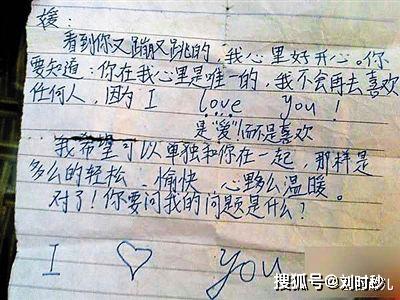 媛：
看到你又蹦又跳的，我心里好开心。你
要知道：你在我心里是唯一的，我不会再去喜欢
任何人，因为 I love you！
是“爱”而不是喜欢
我希望可以单独和你在一起，那样是
多么的轻松、愉快，心里多么温暖。
对了！你要问我的问题是什么？
I ♡ you
搜狐号@刘时秒